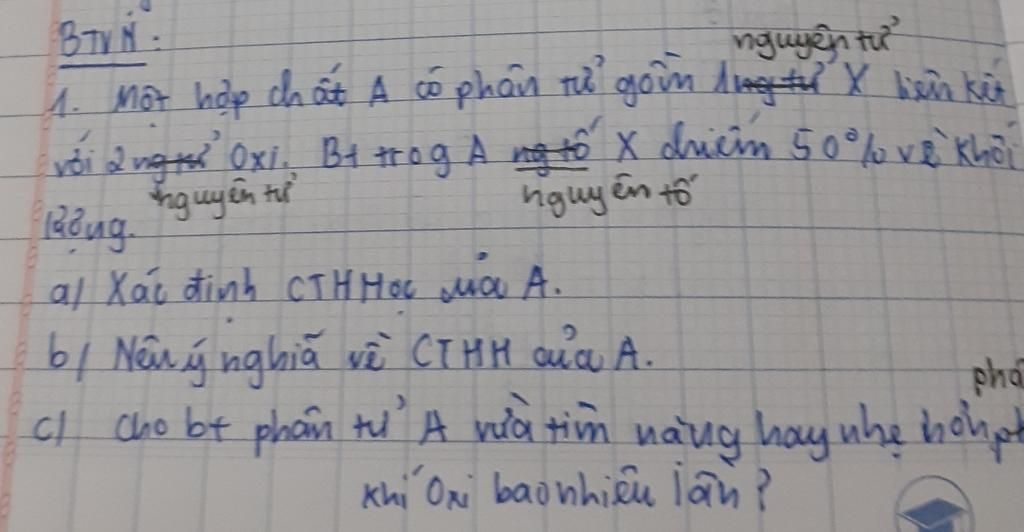 BTVN:
nguyên tử
1. Một hợp chất A có phân tử gồm 1 ng tử X liên kết
với 2 ng tử Oxi. Bt trog A ng tố X chiếm 50% về khối
nguyên tử nguyên tố
lượng.
a) Xác định CTHHọc của A.
b) Nêu ý nghiã về CTHH của A.
phâ
c) Cho bt phân tử A vừa tìm nặng hay nhẹ hơn pt
khí Oxi bao nhiêu lần?